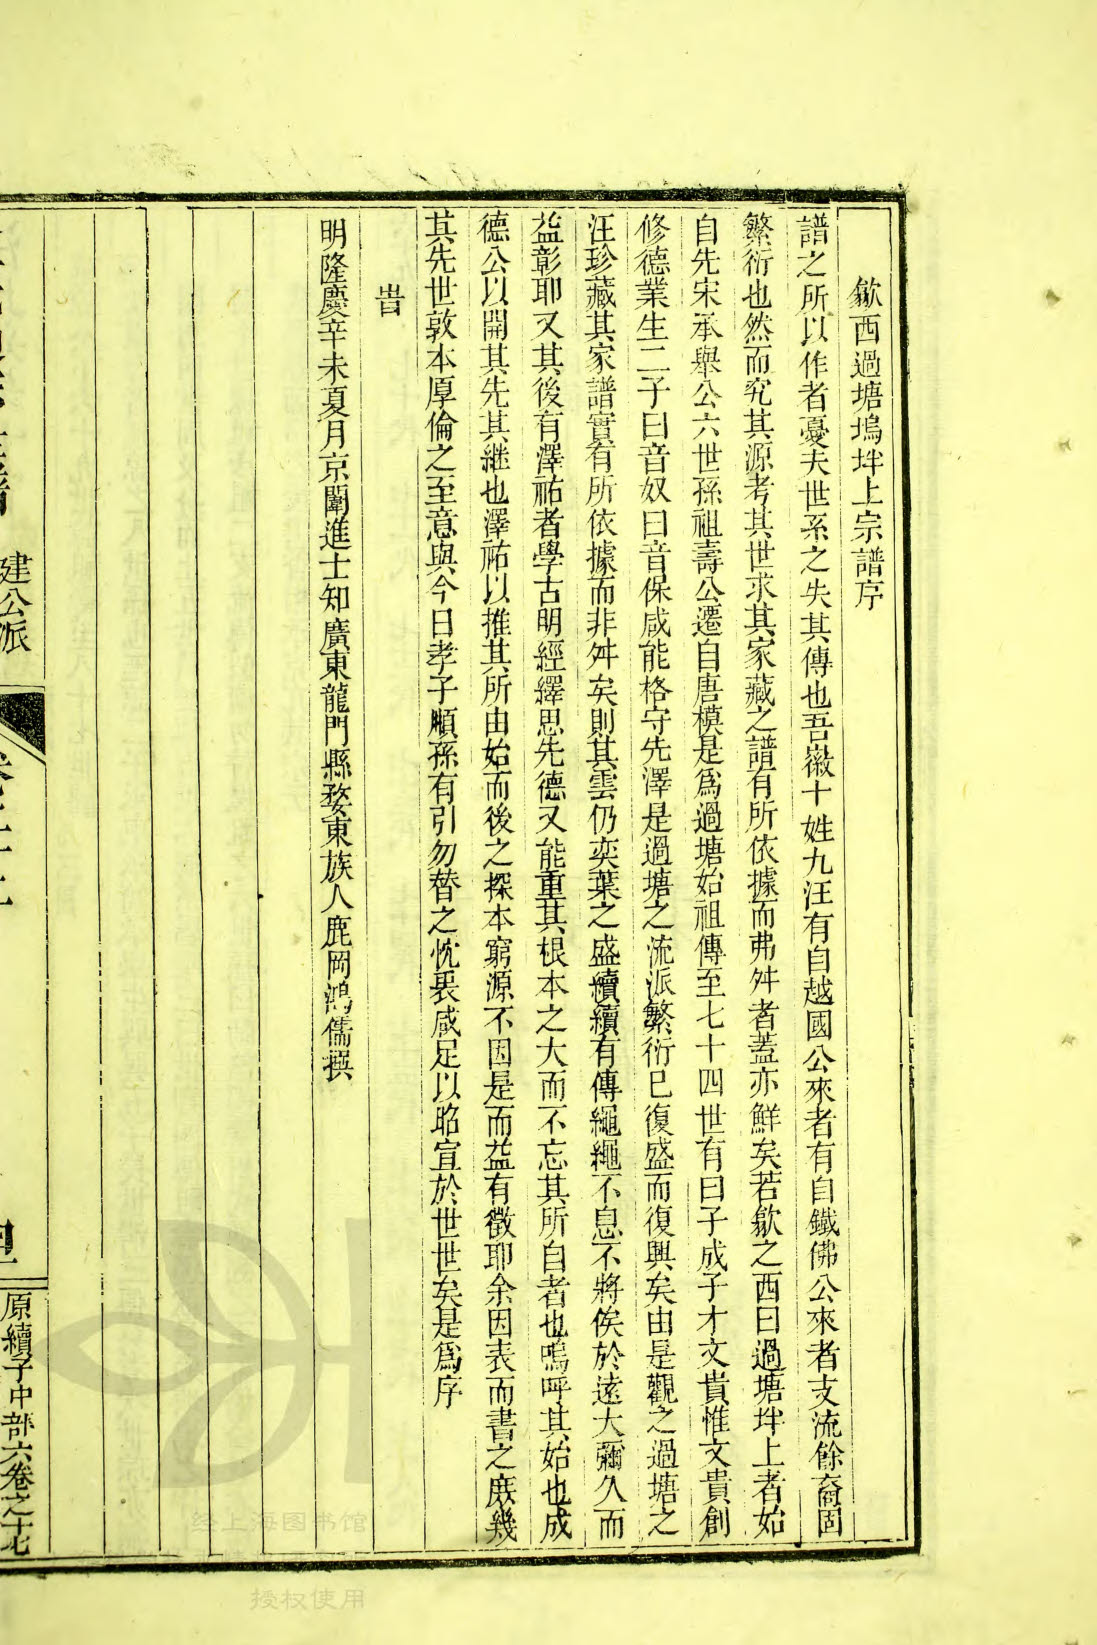 歙西過塘塢垟上宗譜序
譜之所以作者憂夫世系之失其傳也吾徽十姓九汪有自越國公來者有自鐵佛公來者支流餘裔固
繁衍也然而究其源考其世求其家藏之譜有所依據而弗舛者蓋亦鮮矣若歙之西曰過塘垟上者始
自先宋承舉公六世孫祖壽公遷自唐模是爲過塘始祖傳至七十四世有曰子成子才文貴惟文貴創
修德業生二子曰音奴曰音保咸能格守先澤是過塘之流派繁衍已復盛而復興矣由是觀之過塘之
汪珍藏其家譜實有所依據而非舛矣則其雲仍奕葉之盛續續有傳繩繩不息不將俟於遠大彌久而
益彰耶又其後有澤祐者學古明經繹思先德又能重其根本之大而不忘其所自者也嗚呼其始也成
德公以開其先其継也澤祐以推其所由始而後之探本窮源不因是而益有徵耶余因表而書之庶幾
其先世敦本厚倫之至意與今日孝子順孫有引勿替之忱裏咸足以昭宣於世世矣是爲序
旹
明隆慶辛未夏月京闈進士知廣東龍門縣婺東族人鹿岡鴻儒撰
建公派
原續子中部六卷之十七
经上海图书馆
授权使用